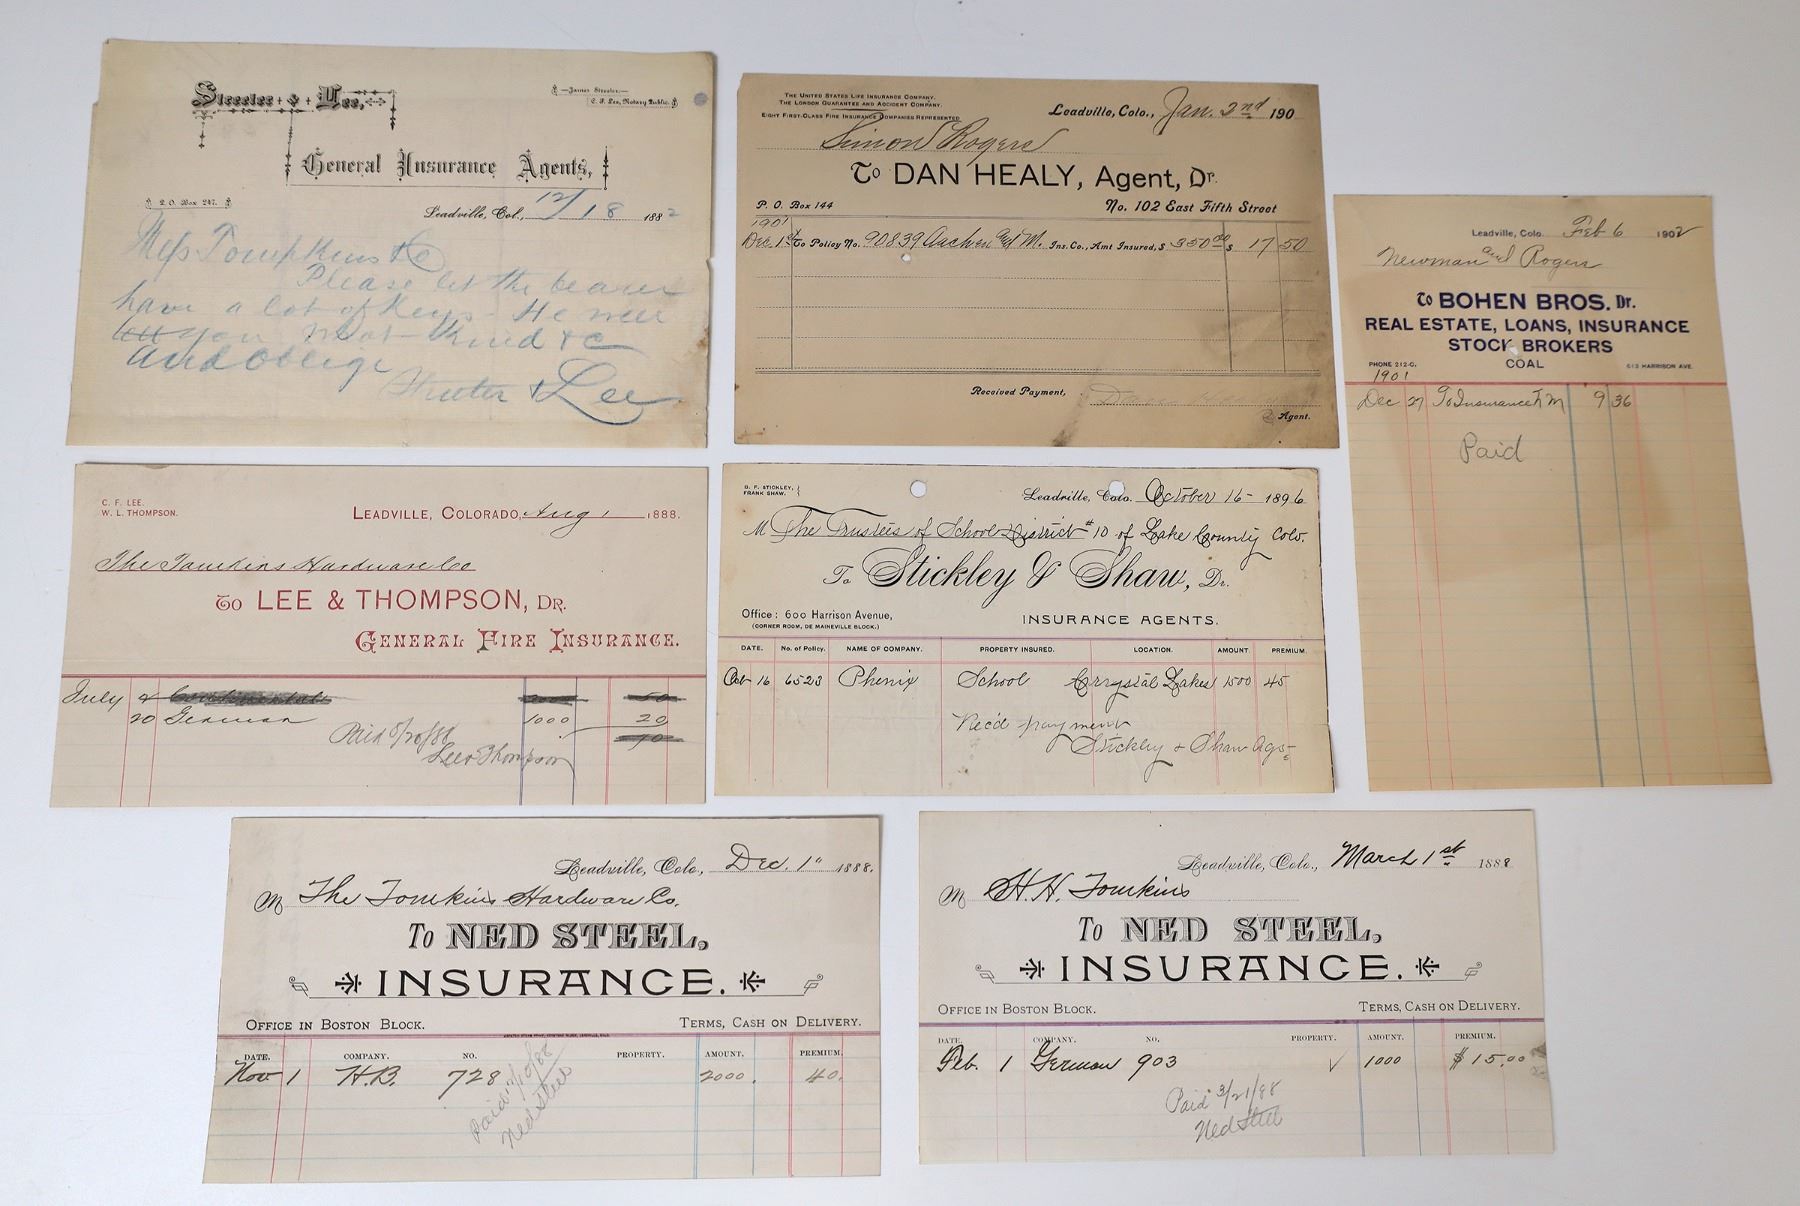 Streeter & Lee,
—James Streeter—
C. F. Lee, Notary Public.
General Insurance Agents,
P.O. Box 247.
Leadville, Col., 12/18 1882
Mess Tompkins & Co
Please let the bearer
have a lot of Keys - He
you
and Oblige
Streeter & Lee
The United States Life Insurance Company.
The London Guarantee and Accident Company.
Eight First-Class Fire Insurance Companies Represented
Leadville, Colo., Jan. 2nd 190
Simon Rogers
To DAN HEALY, Agent, Dr.
P. O. Box 144
No. 102 East Fifth Street
1901
Dec 1st To Policy No. 90839 Aachen and M. Ins. Co., Amt Insured, $ 350.00 $ 17 50
Received Payment,
Agent.
Leadville, Colo. Feb 6 1902
Newman and Rogers
To BOHEN BROS. Dr.
REAL ESTATE, LOANS, INSURANCE
STOCK BROKERS
PHONE 212-G.
COAL
613 HARRISON AVE.
1901
Dec 27 To Insurance F M 9 36
Paid
C. F. LEE.
W. L. THOMPSON.
LEADVILLE, COLORADO, Aug 1 1888.
The Tomkins Hardware Co
To LEE & THOMPSON, DR.
GENERAL FIRE INSURANCE.
July
20 German 1000 20
Paid 8/20/88
Lee & Thompson
B. F. STICKLEY,
FRANK SHAW.
Leadville, Colo. October 16- 1896
M The Trustees of School District #10 of Lake County Colo.
To Stickley & Shaw, Dr.
Office: 600 Harrison Avenue,
(CORNER ROOM, DE MAINEVILLE BLOCK.)
INSURANCE AGENTS.
DATE. No. of Policy. NAME OF COMPANY. PROPERTY INSURED. LOCATION. AMOUNT. PREMIUM.
Oct 16 6523 Phenix School Crrystal Lakes 1500 45
Rec'd payment
Stickley & Shaw Ags-
Leadville, Colo., Dec. 1" 1888.
M The Tomkins Hardware Co.
To NED STEEL,
INSURANCE.
OFFICE IN BOSTON BLOCK.
TERMS, CASH ON DELIVERY.
DATE. COMPANY. NO. PROPERTY. AMOUNT. PREMIUM.
Nov 1 H.B. 728 2000. 40.
Paid 12/10/88
Ned Steel
Leadville, Colo., March 1st 1888
M H. H. Tomkins
To NED STEEL,
INSURANCE.
OFFICE IN BOSTON BLOCK.
TERMS, CASH ON DELIVERY.
DATE. COMPANY. NO. PROPERTY. AMOUNT. PREMIUM.
Feb. 1 German 903 √ 1000 $15.00
Paid 3/21/88
Ned Steel